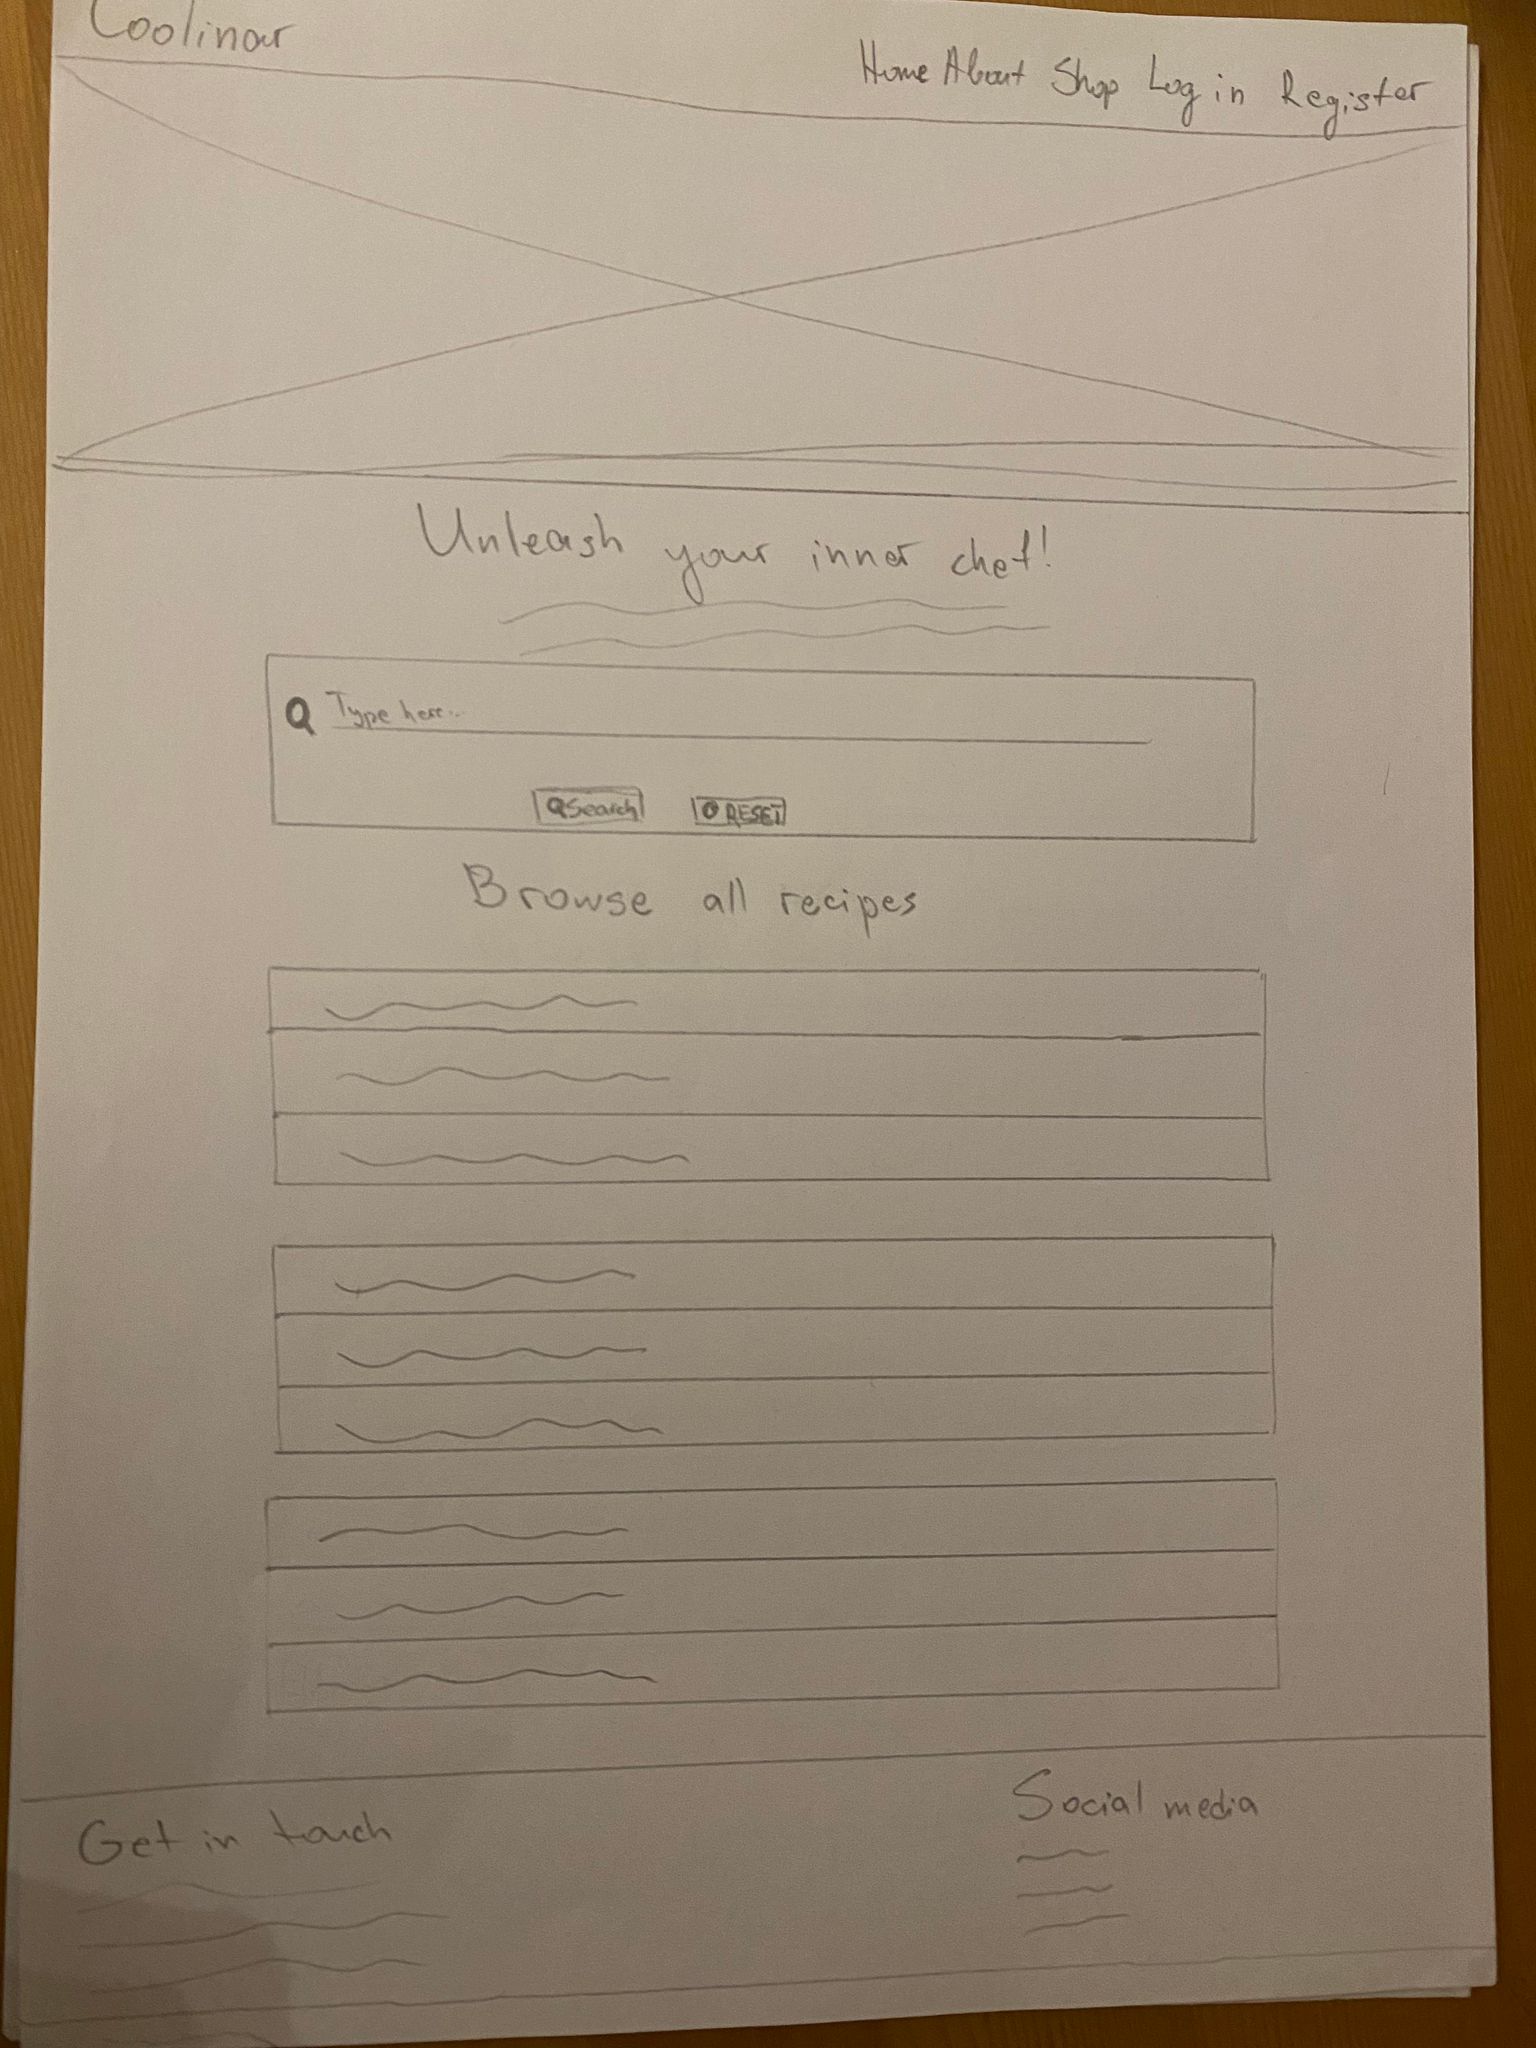 Coolinar
Home About Shop Log in Register
Unleash your inner chef!
Type here...
Search RESET
Browse all recipes
Get in touch Social media